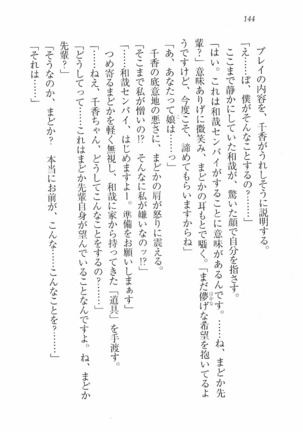 144
プレイの内容を、千香がうれしそうに説明する。
「え……ぼ、僕がそんなことするの？……」
ここまで静かにしていた和哉が、驚いた顔で自分を指さす。
「はい。これは和哉センパイがすることに意味があるんです。……ね、まどか先
輩？」意味ありげに微笑み、まどかの耳もとで囁く。「まだ儚げな希望を抱いてるよ
うですけど、今度こそ、諦めてもらいますからね」
「あ、あなたって娘は……っ」
千香の底意地の悪さに、まどかの肩が怒りに震える。
「そこまで私が憎いの!? そんなに私が嫌いなの!?」
「……和哉センパイ、はじめますよー。準備をお願いしまーす」
つめ寄るまどかを軽く無視し、和哉に家から持ってきた「道具」を手渡す。
「……ねえ、千香ちゃん、どうしてこんなことをするの？……」
「どうしてって……これはまどか先輩自身が望んでいることなんですよ。ね、まどか
先輩？」
「そうなのか、まどか？　本当にお前が、こんな……こんなことを？……」
「それは……」